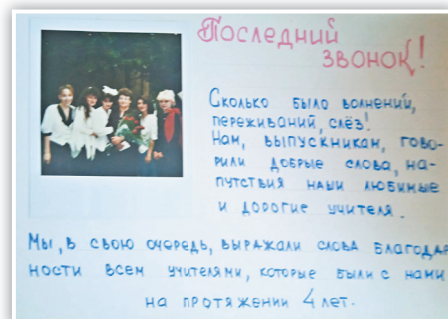 Последний
звонок!
Сколько было волнений,
переживаний, слёз!
Нам, выпускникам, гово-
рили добрые слова, на-
путствия наши любимые
и дорогие учителя.
Мы, в свою очередь, выражали слова благодар
ности всем учителями, которые были с нами
на протяжении 4 лет.